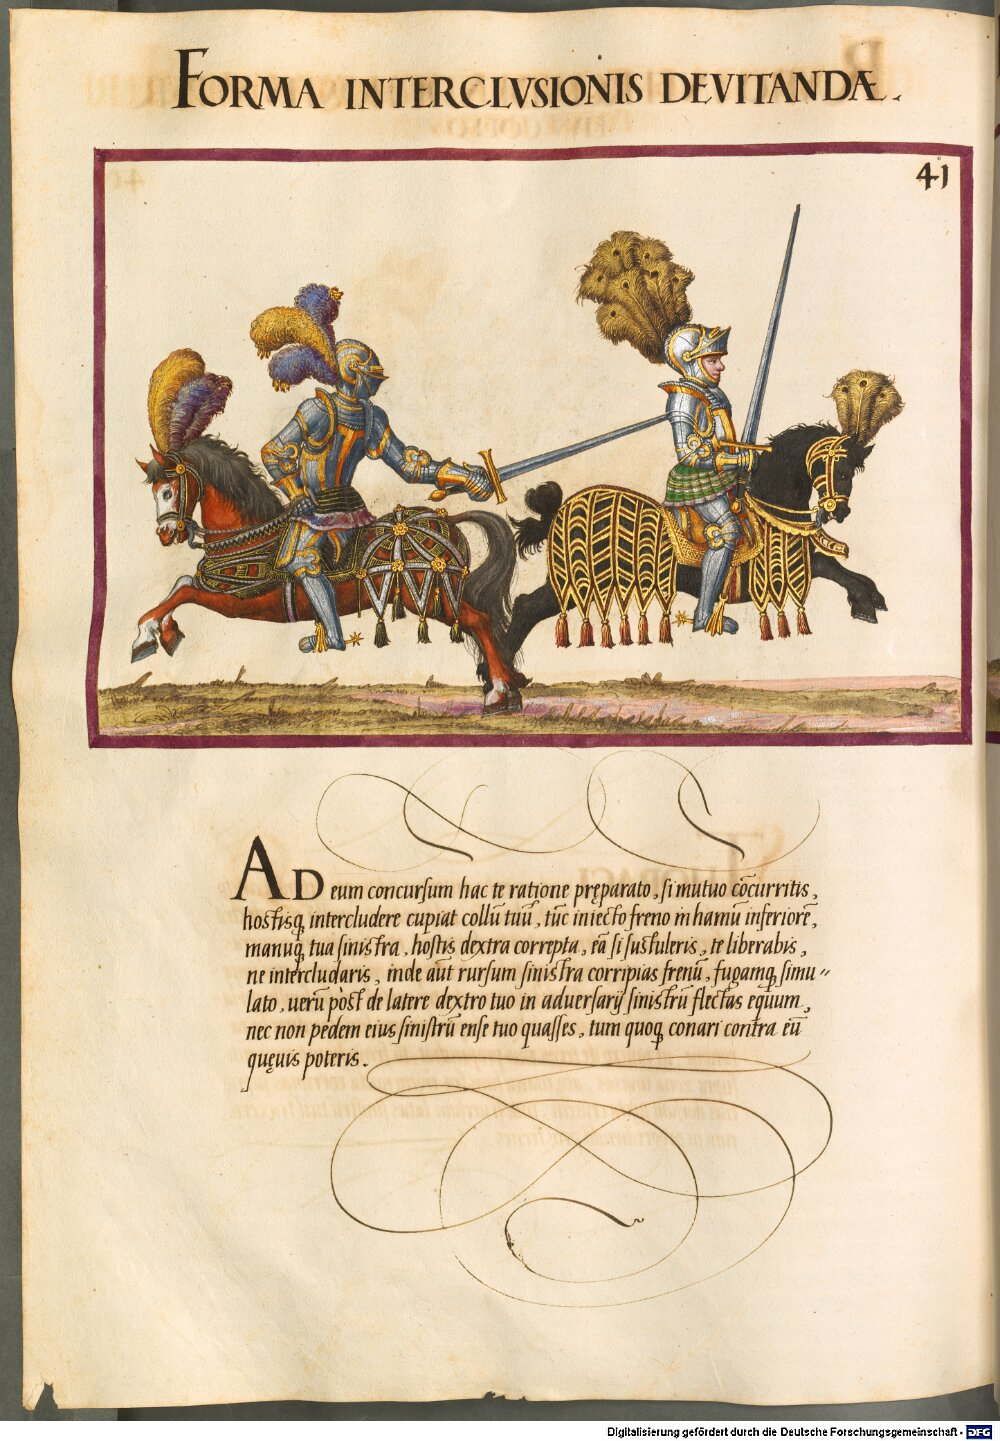 FORMA INTERCLVSIONIS DEVITANDÆ.
41
AD eum concursum hac te ratione pręparato, si mutuo cōcurritis,
hostisq́ꝫ intercludere cupiat collū tuū, tūc iniecto freno in hamū inferiorē,
manuq́ꝫ tua sinistra, hostis dextra correpta, eā si sustuleris, te liberabis,
ne intercludaris, inde aūt rursum sinistra corripias frenū, fugamq́ꝫ simu〃
lato, uerū pòst de latere dextro tuo in aduersarÿ sinistrū flectas equum,
nec non pedem eius sinistrū ense tuo quasses, tum quoq́ꝫ conari contra eū
quęuis poteris.
Digitalisierung gefördert durch die Deutsche Forschungsgemeinschaft - DFG